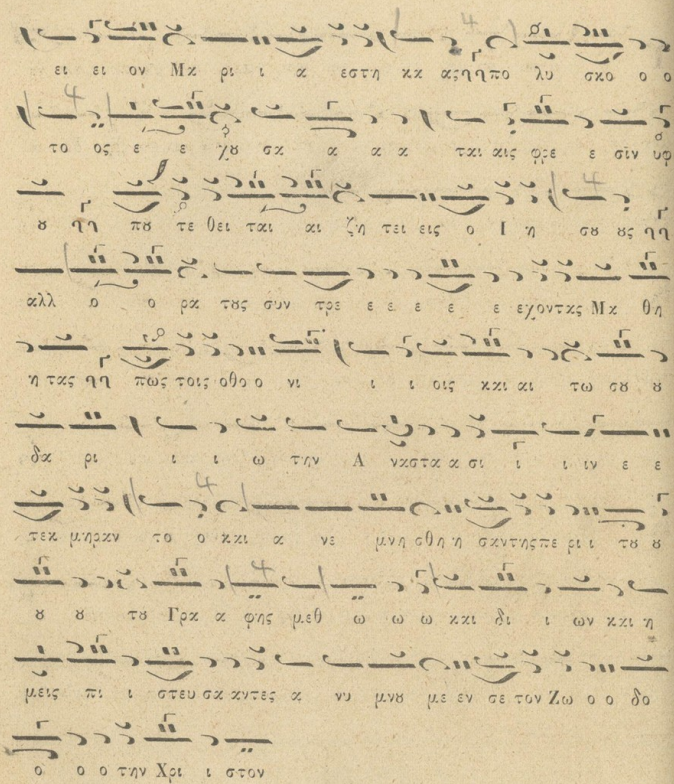 ει ει ον Μα ρι ι α εστη κα αςηηπο λυ σκο ο ο
το ος ε ε χȣ σα α α α ται αις φρε ε σῒν υφ
ȣ ηη πȣ τε θει ται αι ζη τει εις ο Ι η σȣ ȣς ηη
αλλ ο ο ρα τȣς συν τρε ε ε ε ε ε εχοντας Μα θη
η τας ηη πως τοις οθο ο νι ι ι οις και αι τω σȣ ȣ
δα ρι ι ι ω την Α ναστα α σι ι ι ιν ε ε
τεκ μηραν το ο και α νε μνη σθη η σαντηςπε ρι ι τȣ ȣ
ȣ ȣ τȣ Γρα α φης μεθ ω ω ω και δι ι ων και η
μεις πι ι στευ σα αντες α νυ μνȣ με εν σε τον Ζω ο ο δο
ο ο ο την Χρι ι στον